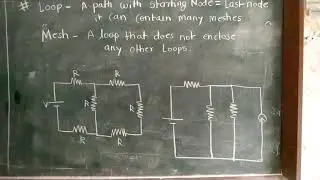 # Loop - A path with starting Node = Last node
it can contain many meshes
Mesh - A loop that does not enclose
any other Loops.
R R
V R R
R R